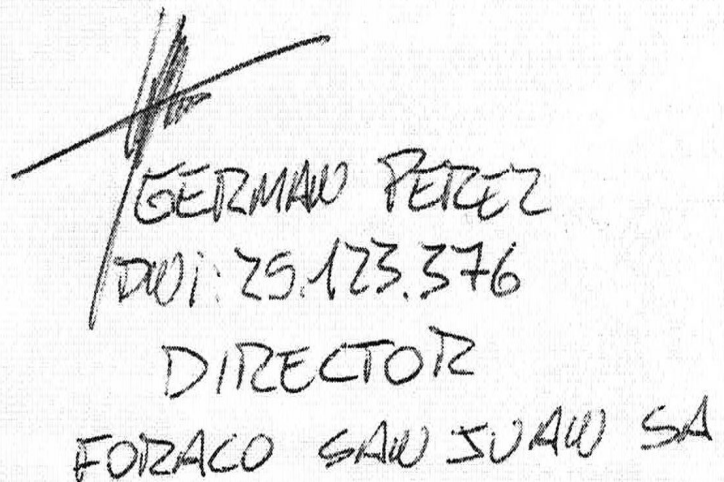 GERMAN PEREZ
DNI: 25.123.376
DIRECTOR
FORACO SAN JUAN SA